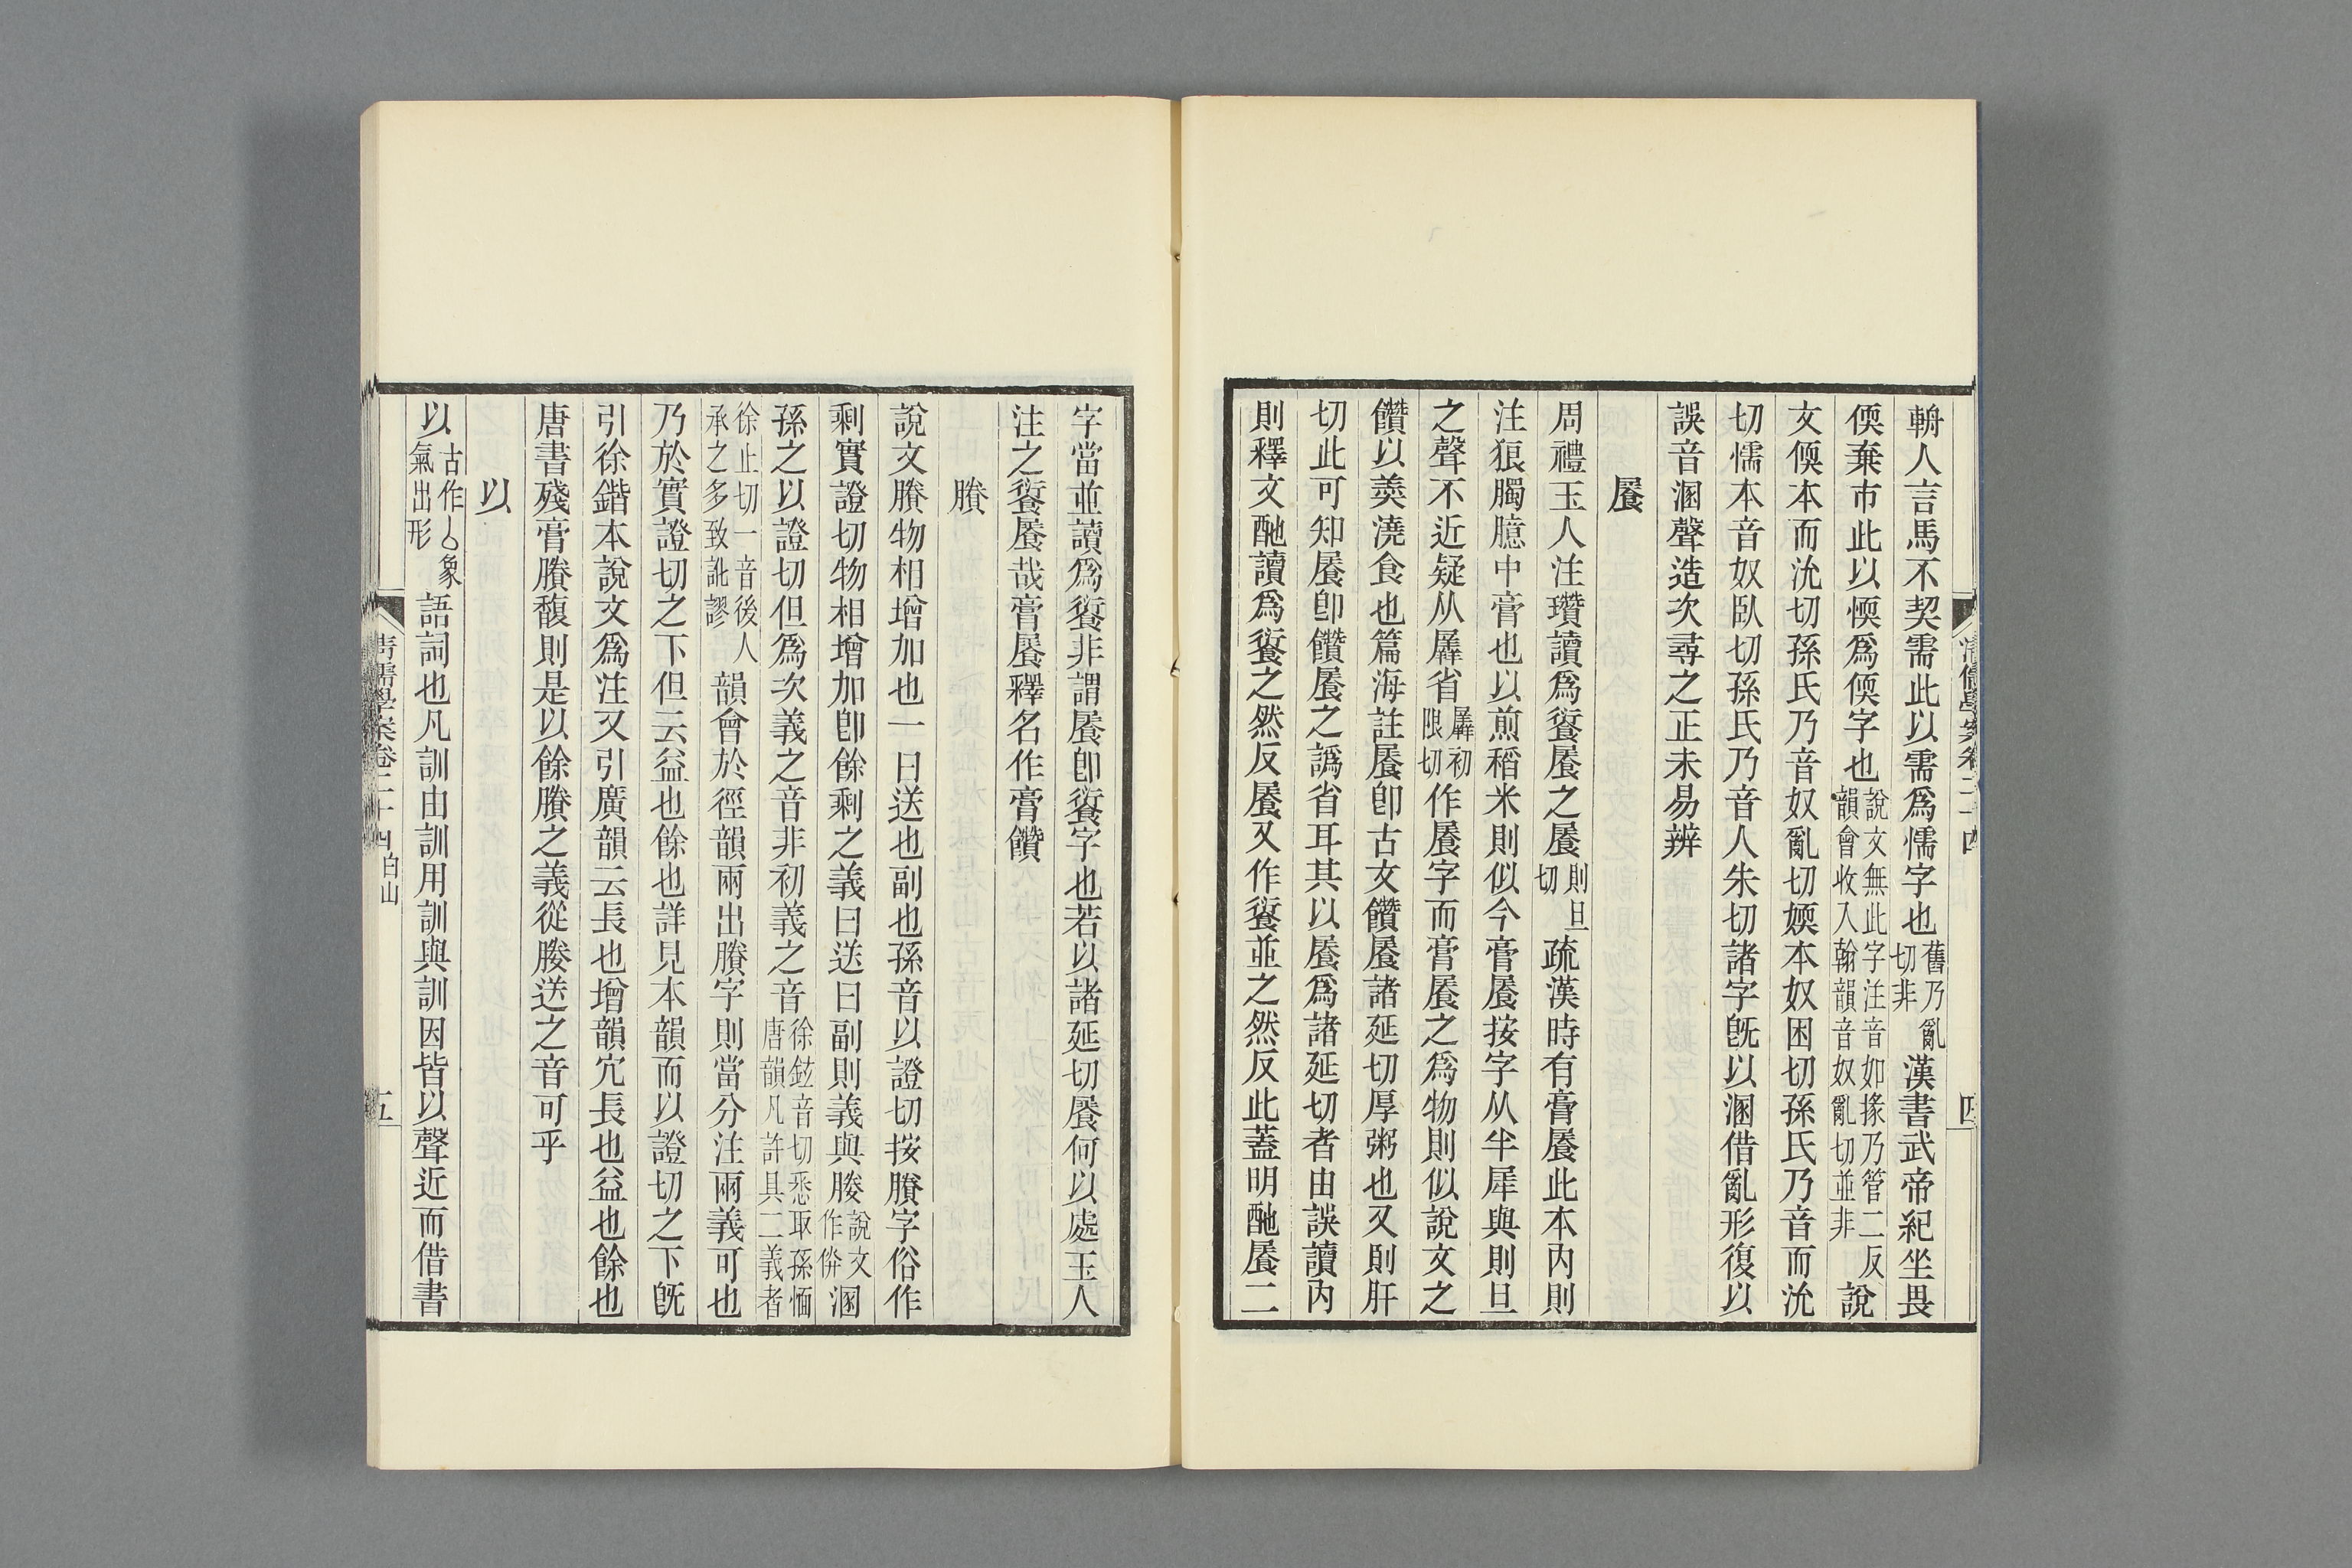 輈人言馬不契需此以需爲懦字也舊乃亂切非漢書武帝紀坐畏
偄棄市此以愞爲偄字也說文無此字注音如掾乃管二反韻會收入翰韻音奴亂切並非說
文偄本而沇切孫氏乃音奴亂切媆本奴困切孫氏乃音而沇
切懦本音奴臥切孫氏乃音人朱切諸字旣以溷借亂形復以
誤音溷聲造次尋之正未易辨
䬤
周禮玉人注瓚讀爲餐䬤之䬤則旦切疏漢時有膏䬤此本內則
注狼臅臆中膏也以煎稻米則似今膏䬤按字从半犀與則旦
之聲不近疑从羼省羼初限切作䬤字而膏䬤之爲物則似說文之
饡以羹澆食也篇海註䬤卽古文饡䬤諸延切厚粥也又則肝
切此可知䬤卽饡䬤之譌省耳其以䬤爲諸延切者由誤讀內
則釋文酏讀爲餐之然反䬤又作餐並之然反此蓋明酏䬤二
字當並讀爲餐非謂䬤卽餐字也若以諸延切䬤何以處玉人
注之餐䬤哉膏䬤釋名作膏饡
賸
說文賸物相增加也一曰送也副也孫音以證切按賸字俗作
剩實證切物相增加卽餘剩之義曰送曰副則義與媵說文作倂溷
孫之以證切但爲次義之音非初義之音徐鉉音切悉取孫愐唐韻凡許具二義者
徐止切一音後人承之多致訛謬韻會於徑韻兩出賸字則當分注兩義可也
乃於實證切之下但云益也餘也詳見本韻而以證切之下旣
引徐鍇本說文爲注又引廣韻云長也增韻宂長也益也餘也
唐書殘膏賸馥則是以餘賸之義從媵送之音可乎
以
以古作㠯象氣出形語詞也凡訓由訓用訓與訓因皆以聲近而借書
清儒學案卷二十四 白山
五
清儒學案卷二十四
四